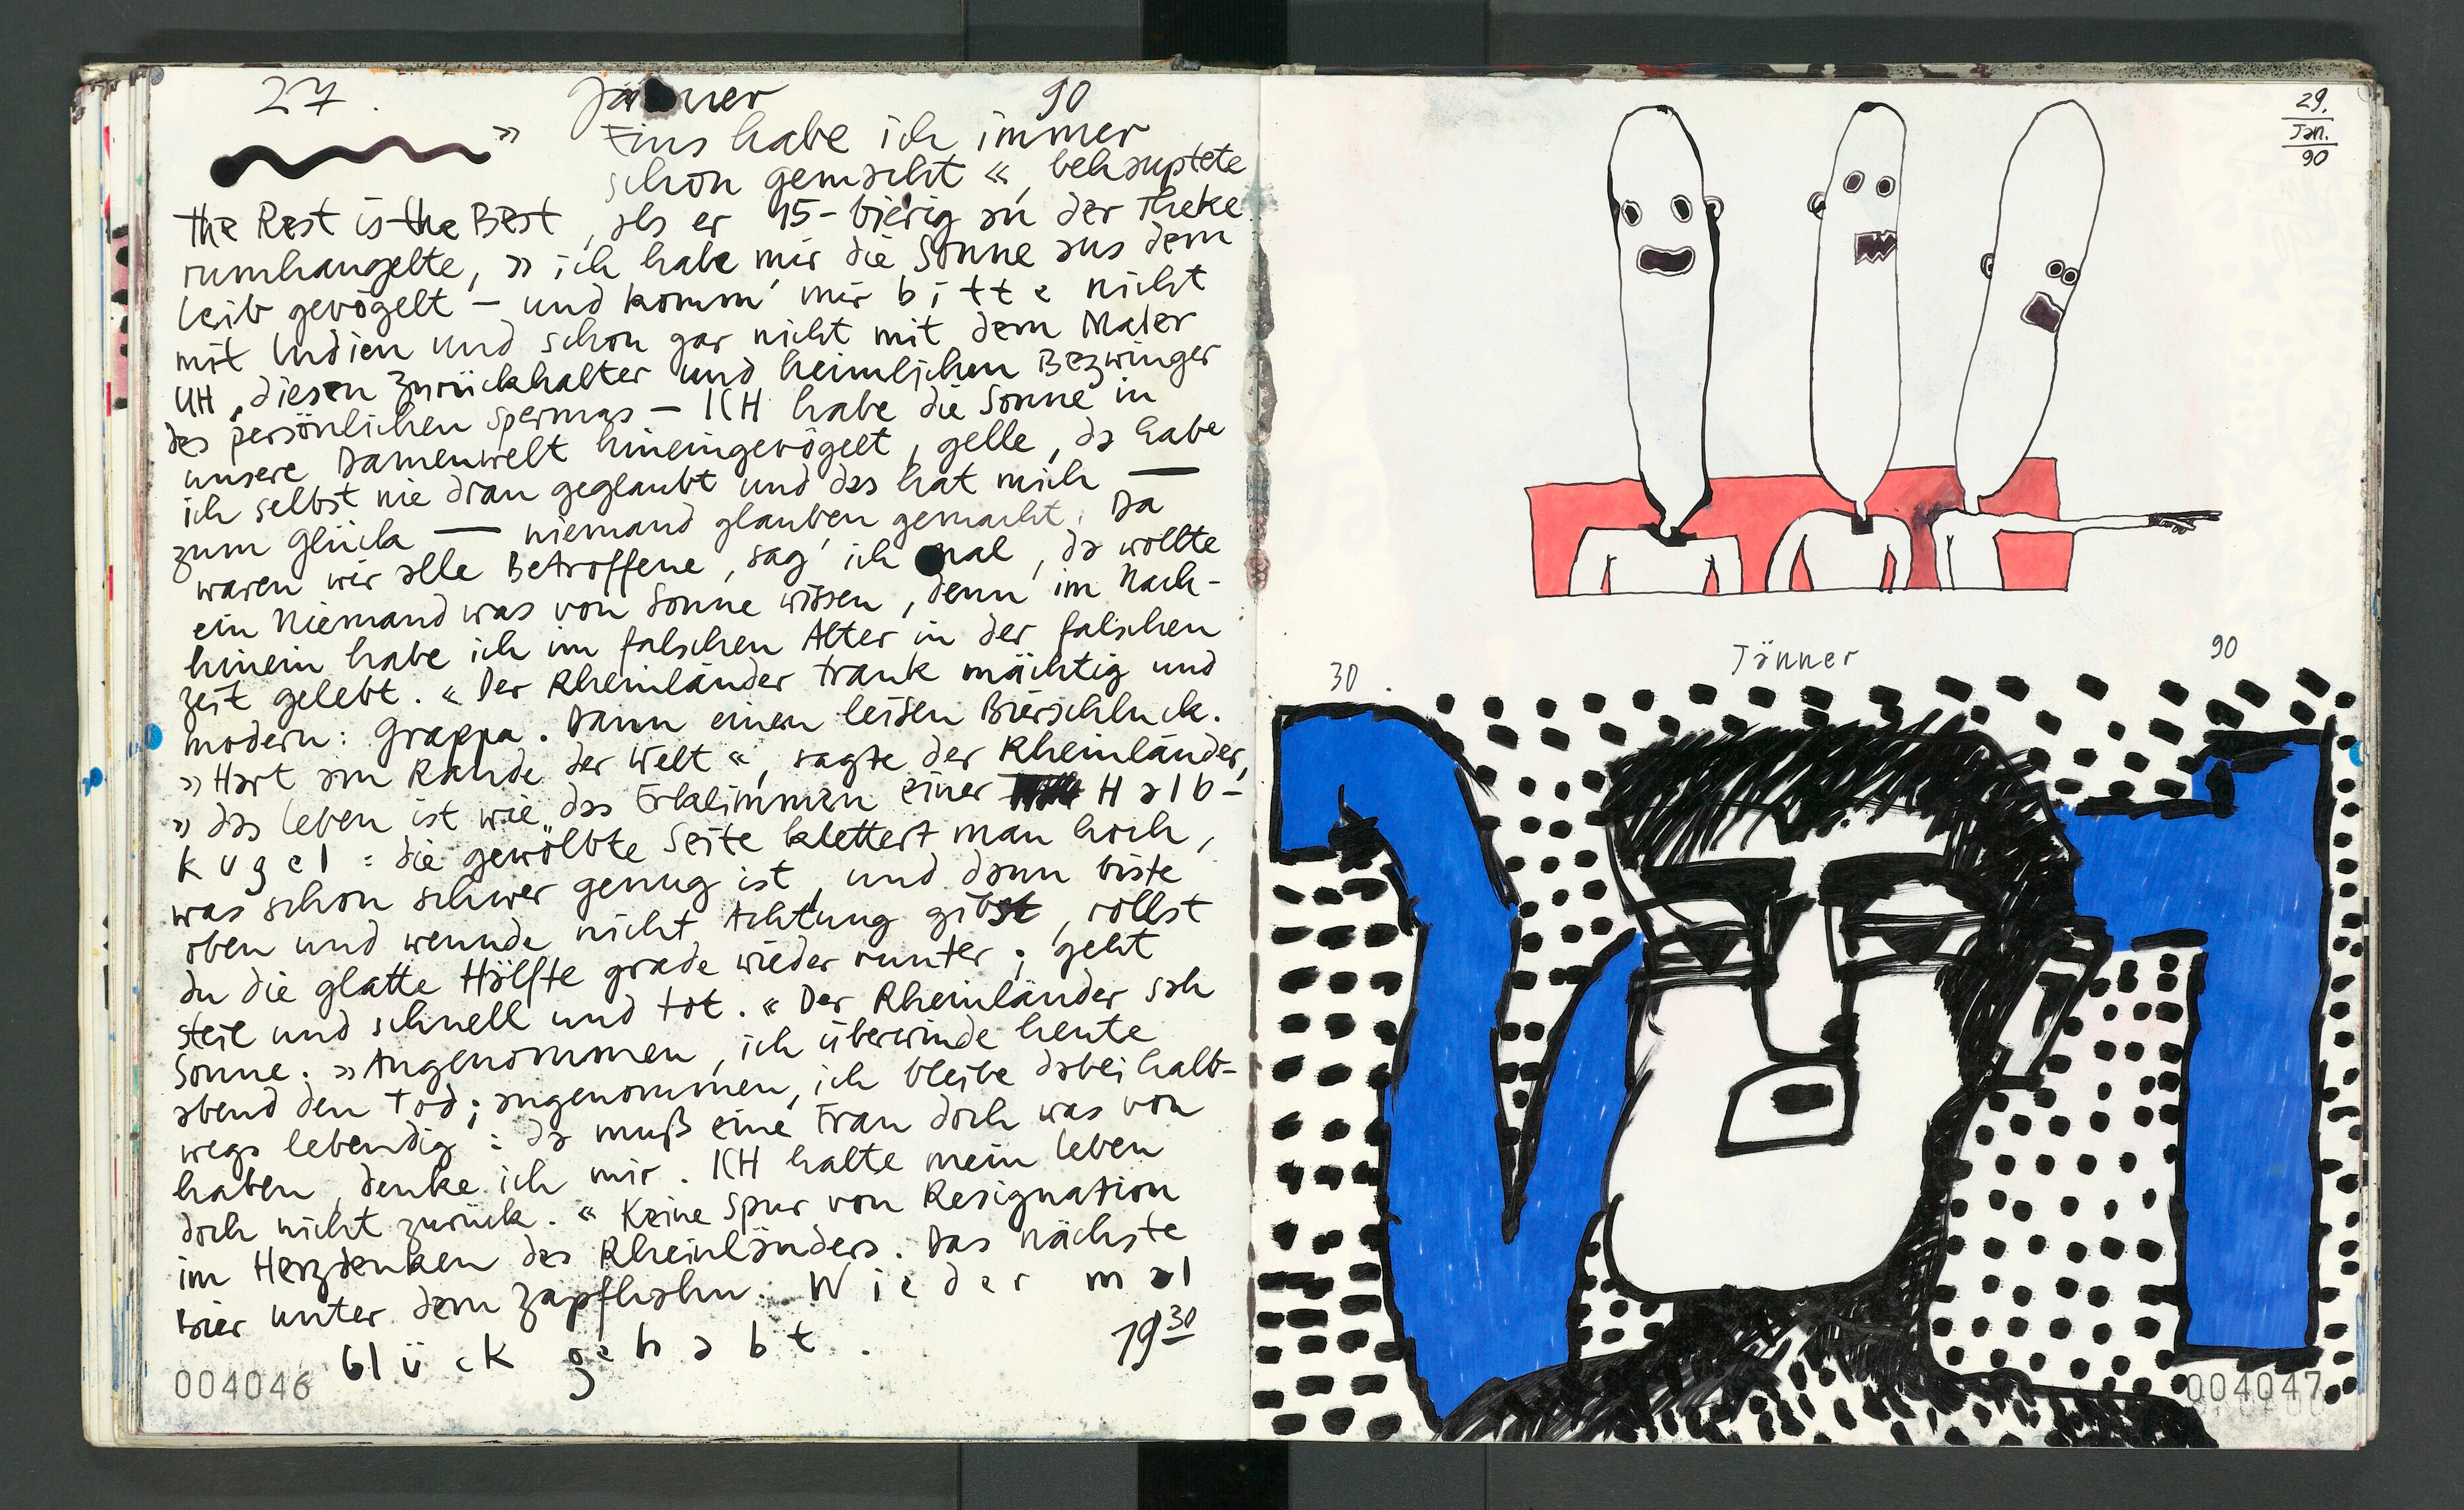 27. Jänner 90
» Eins habe ich immer
schon gemacht «, behauptete
the Rest is the Best, als er 15-bierig an der Theke
rumhangelte, » ich habe mir die Sonne aus dem
Leib gevögelt – und komm' mir bitte nicht
mit Indien und schon gar nicht mit dem Maler
UH, diesen Zurückhalter und heimlichen Bezwinger
des persönlichen Spermas – ICH habe die Sonne in
unsere Damenwelt hineingevögelt, gelle, da habe
ich selbst nie dran geglaubt und das hat mich —
zum Glück — niemand glauben gemacht. Da
waren wir alle Betroffene, sag' ich mal, da wollte
ein Niemand was von Sonne wissen, denn im Nach-
hinein habe ich im falschen Alter in der falschen
Zeit gelebt. « Der Rheinländer trank mächtig und
modern: Grappa. Dann einen leisen Bierschluck.
» Hart am Rande der Welt «, sagte der Rheinländer,
» das Leben ist wie das Erklimmen einer Halb-
kugel: die gewölbte Seite klettert man hoch,
was schon schwer genug ist, und dann biste
oben und wennde nicht Achtung gibst, rollst
du die glatte Hälfte grade wieder runter; geht
steil und schnell und tot. « Der Rheinländer sah
Sonne. » Angenommen, ich überwinde heute
abend den Tod; angenommen, ich bleibe dabei halb-
wegs lebendig: da muß eine Frau doch was von
haben, denke ich mir. ICH halte mein Leben
doch nicht zurück. « Keine Spur von Resignation
im Herzdenken des Rheinländers. Das nächste
Bier unter dem Zapfhahn. Wieder mal
Glück gehabt.
19 30
004046
29.
Jan.
90
30. Jänner 90
004047